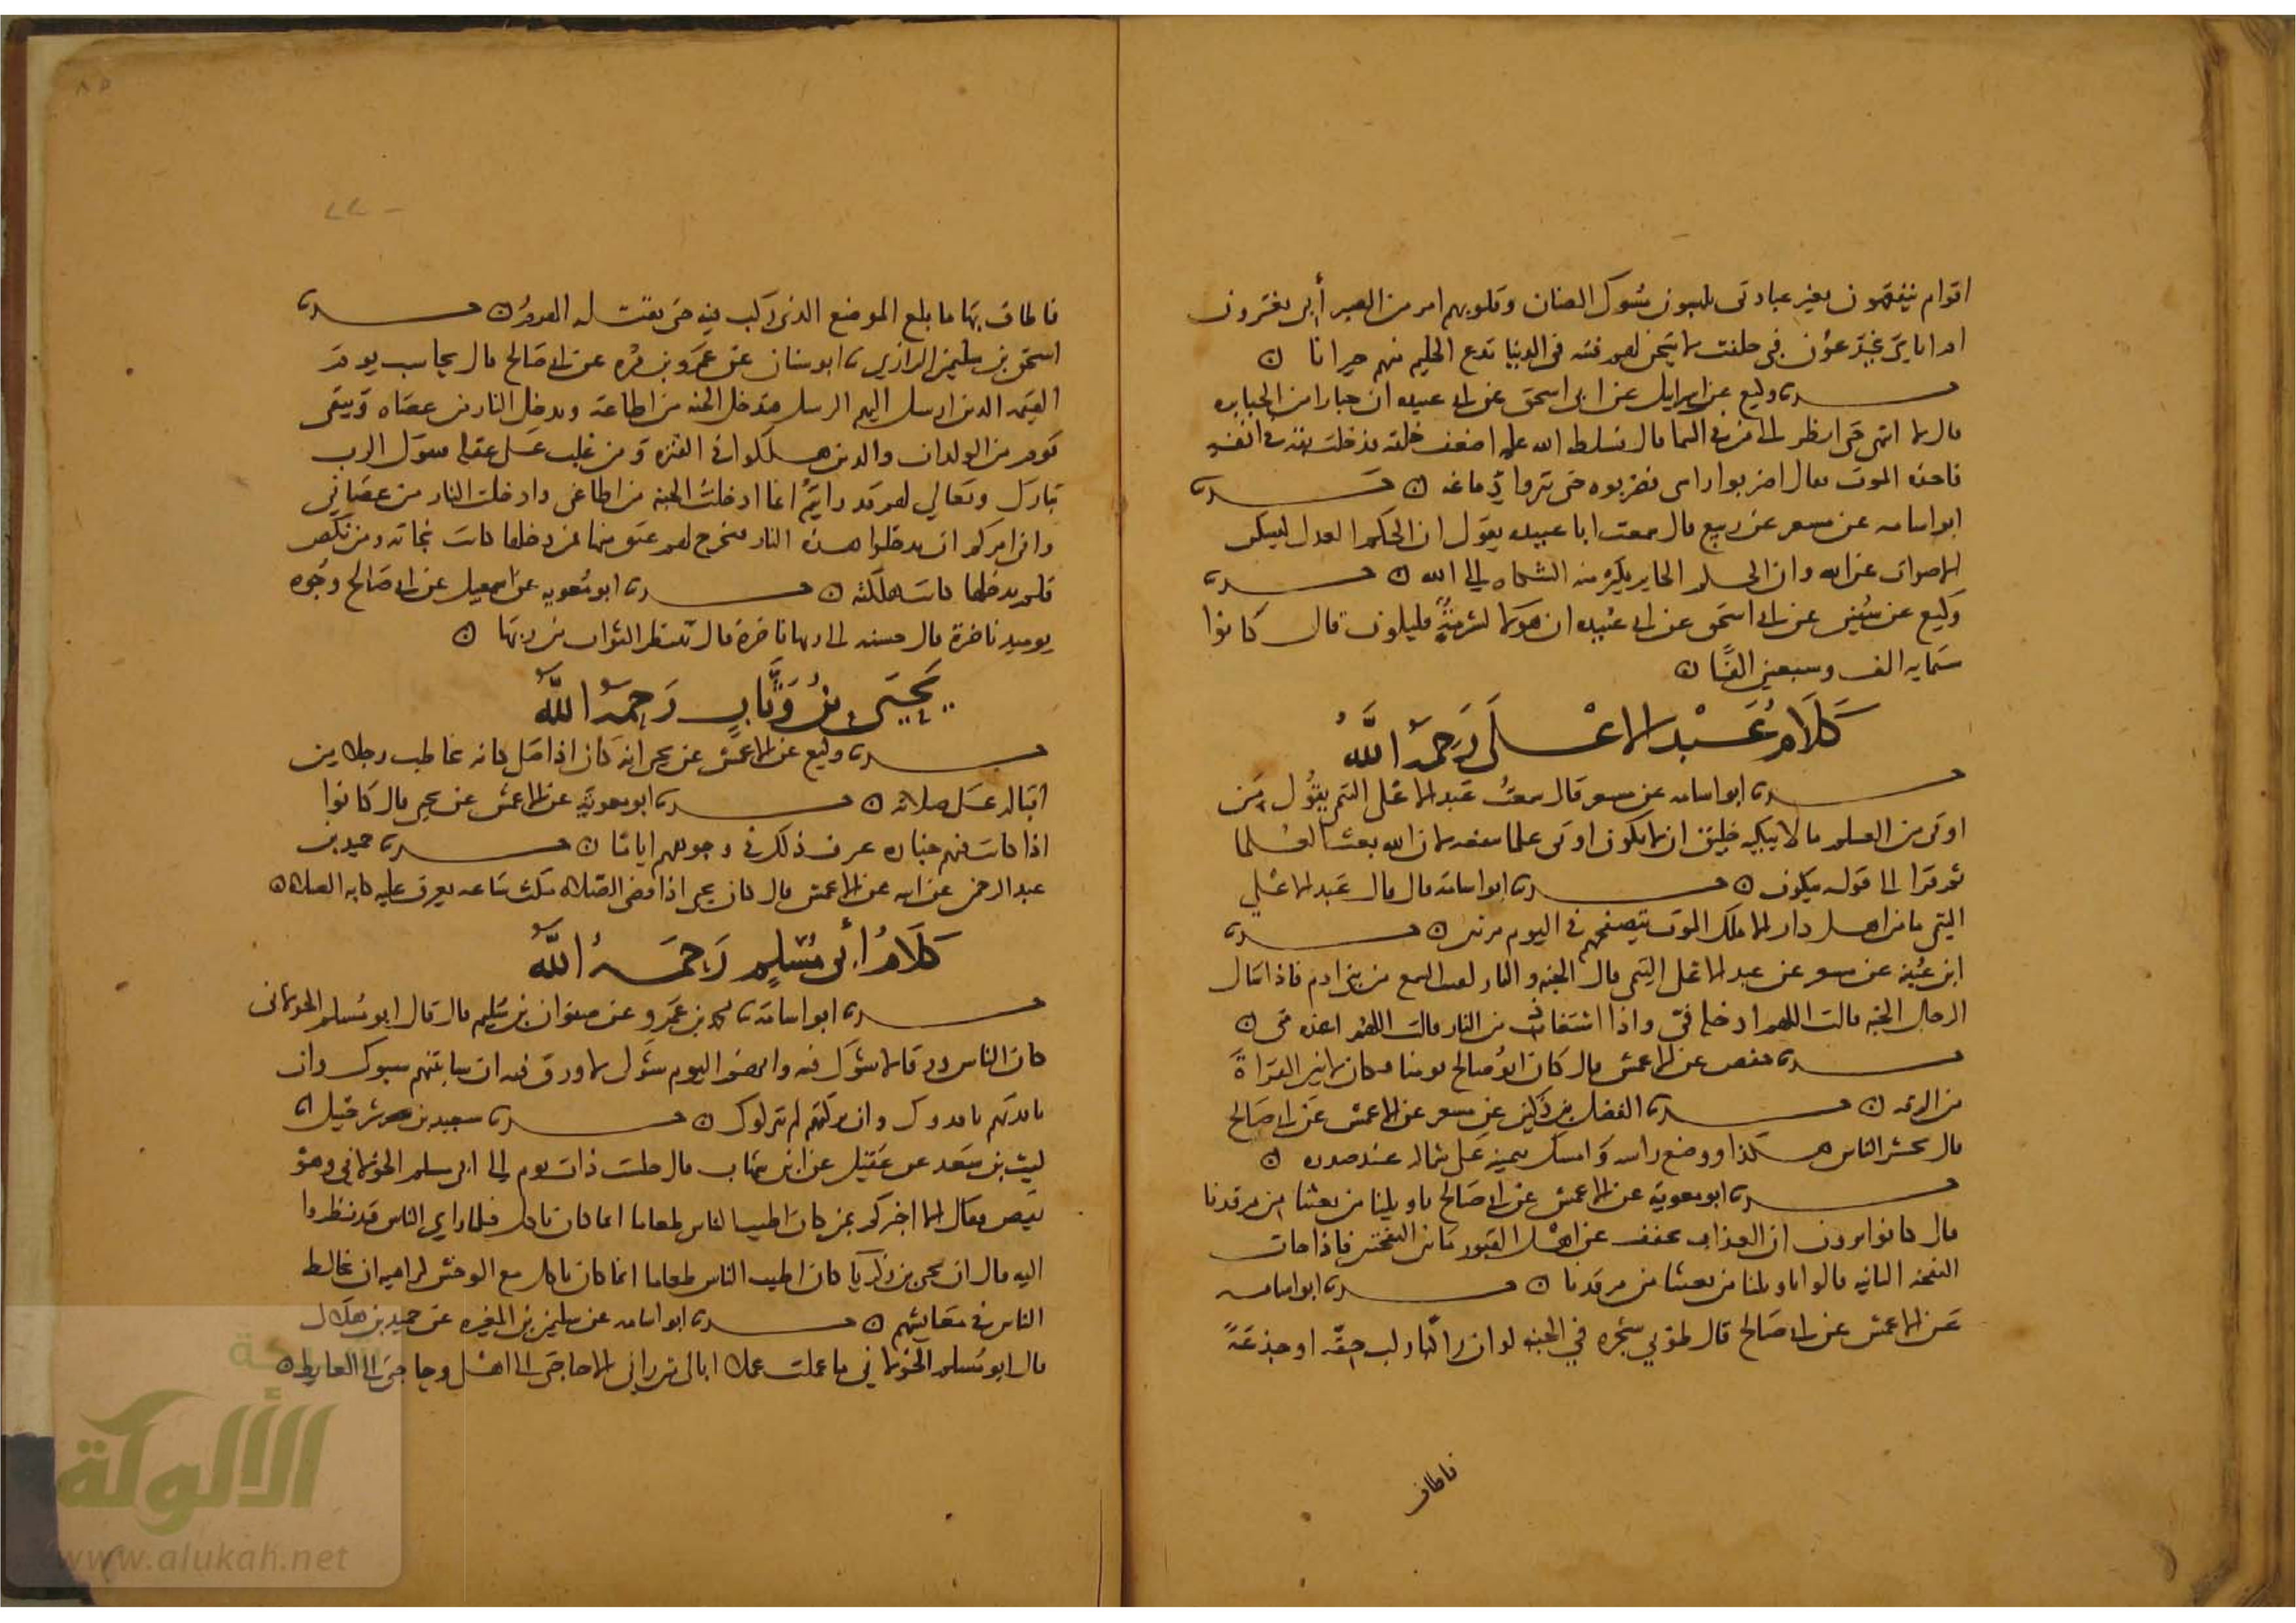 اقوام يتفقهون بغير عبادتي يلبسون مسوك الضان وقلوبهم امر من الصبر أبي يغترون
ام اياي يخدعون في حلفت لاتيحن لهم فتنة في الدنيا تدع الحليم منهم حيرانا ن
حدثنا وكيع عن اسرايل عن ابي اسحق عن ابي عبيده ان جبارا من الجبابره
قال لا انتهي حتى انظر الى من في السما قال فسلط الله عليه اضعف خلقه فدخلت بقه في انفه
فاخذه الموت فقال اضربوا راسي فضربوه حتى نثروا دماغه ن حدثنا
ابو اسامه عن مسعر عن ربيع قال سمعت ابا عبيده يقول ان الحكم العدل ليسكن
الاصوات عن الله وان الحكم الجاير يكثر منه الشكاه الى الله ن حدثنا
وكيع عن سفين عن ابي اسحق عن ابي عبيده ان هولا لشرذمة قليلون قال كانوا
ستمايه الف وسبعين الفا ن
كلام عبد الاعلى رحمه الله
حدثنا ابو اسامه عن مسعر قال سمعت عبد الاعلى التيمي يقول من
اوتي من العلم ما لا يبكيه خليق ان لا يكون اوتي علما ينفعه لان الله نعت العلما
ثم قرا الى قوله يبكون ن حدثنا ابو اسامة قال قال عبد الاعلى
التيمي ما من اهل دار الا ملك الموت يتصفحهم في اليوم مرتين ن حدثنا
ابن عيينه عن مسعر عن عبد الاعلى التيمي قال الجنه والنار لقنتا السمع من بني ادم فاذا سال
الرجل الجنه قالت اللهم ادخله في واذا استعاذ من النار قالت اللهم اعذه مني ن
حدثنا حفص عن الاعمش قال كان ابو صالح يومنا فكان لا يجيز القراة
من الرقه ن حدثنا الفضل بن دكين عن مسعر عن الاعمش عن ابي صالح
قال يحشر الناس هكذا ووضع راسه وامسك بيمينه على شماله عند صدره ن
حدثنا ابو معوية عن الاعمش عن ابي صالح يا ويلنا من بعثنا من مرقدنا
قال كانوا يرون ان العذاب يخفف عن اهل القبور ما بين النفختين فاذا جات
النفخه الثانيه قالوا يا ويلنا من بعثنا من مرقدنا ن حدثنا ابو اسامه
عن الاعمش عن ابي صالح قال طوبي شجره في الجنه لو ان راكبا ركب حقة او جذعة
فاطاف
فاطاف بها ما بلغ الموضع الذي ركب فيه حتى يقتله الهرم ن حدثنا
اسحق بن سليمن الرازي نا ابو سنان عن عمرو بن مره عن ابي صالح قال يحاسب يوم
القيمه الذين ارسل اليهم الرسل فيدخل الجنه من اطاعه ويدخل النار من عصاه ويبقى
قوم من الولدان والذين هلكوا في الفتره ومن غلب على عقله فيقول الرب
تبارك وتعالى لهم قد رايتم انما ادخلت الجنه من اطاعني وادخلت النار من عصاني
واني امركم ان تدخلوا هذه النار فيخرج لهم عنق منها فمن دخلها كانت نجاته ومن نكص
فلم يدخلها كانت هلكته ن حدثنا ابو معويه عن اسمعيل عن ابي صالح وجوه
يوميذ ناضرة قال حسنه الى ربها ناظرة قال تنتظر الثواب من ربها ن
يحيى بن وثاب رحمه الله
حدثنا وكيع عن الاعمش عن يحيى انه كان اذا صلى كانه يخاطب رجلا من
اقباله على صلاته ن حدثنا ابو معوية عن الاعمش عن يحيى قال كانوا
اذا كانت فيهم جنازه عرف ذلك في وجوههم اياما ن حدثنا حميد بن
عبد الرحمن عن ابيه عن الاعمش قال كان يحيى اذا قضى الصلاه مكث ساعه يعرف عليه كابه الصلاه ن
كلام أبي مسلم رحمه الله
حدثنا ابو اسامة نا محمد بن عمرو عن صفوان بن سليم قال قال ابو مسلم الخولاني
كان الناس ورقا لا شوك فيه وانهم اليوم شوك لا ورق فيه ان ساببتهم سبوك وان
ناقدتهم ناقدوك وان تركتهم لم يتركوك ن حدثنا سعيد بن شرحبيل نا
ليث بن سعد عن عقيل عن ابن شهاب قال جلست ذات يوم الى ابي مسلم الخولاني وهو
يقص فقال الا اخبركم بمن كان اطيب الناس طعاما فلما راي الناس قد نظروا
اليه قال ان يحيى بن زكريا كان اطيب الناس طعاما انما كان ياكل مع الوحش كراهية ان يخالط
الناس في معايشهم ن حدثنا ابو اسامه عن سليمن بن المغيره عن حميد بن هلال
قال ابو مسلم الخولاني ما عملت عملا ابالي من راني الا حاجتي الى اهلي وحاجتي الى الغايط ن
الألوكة
www.alukah.net